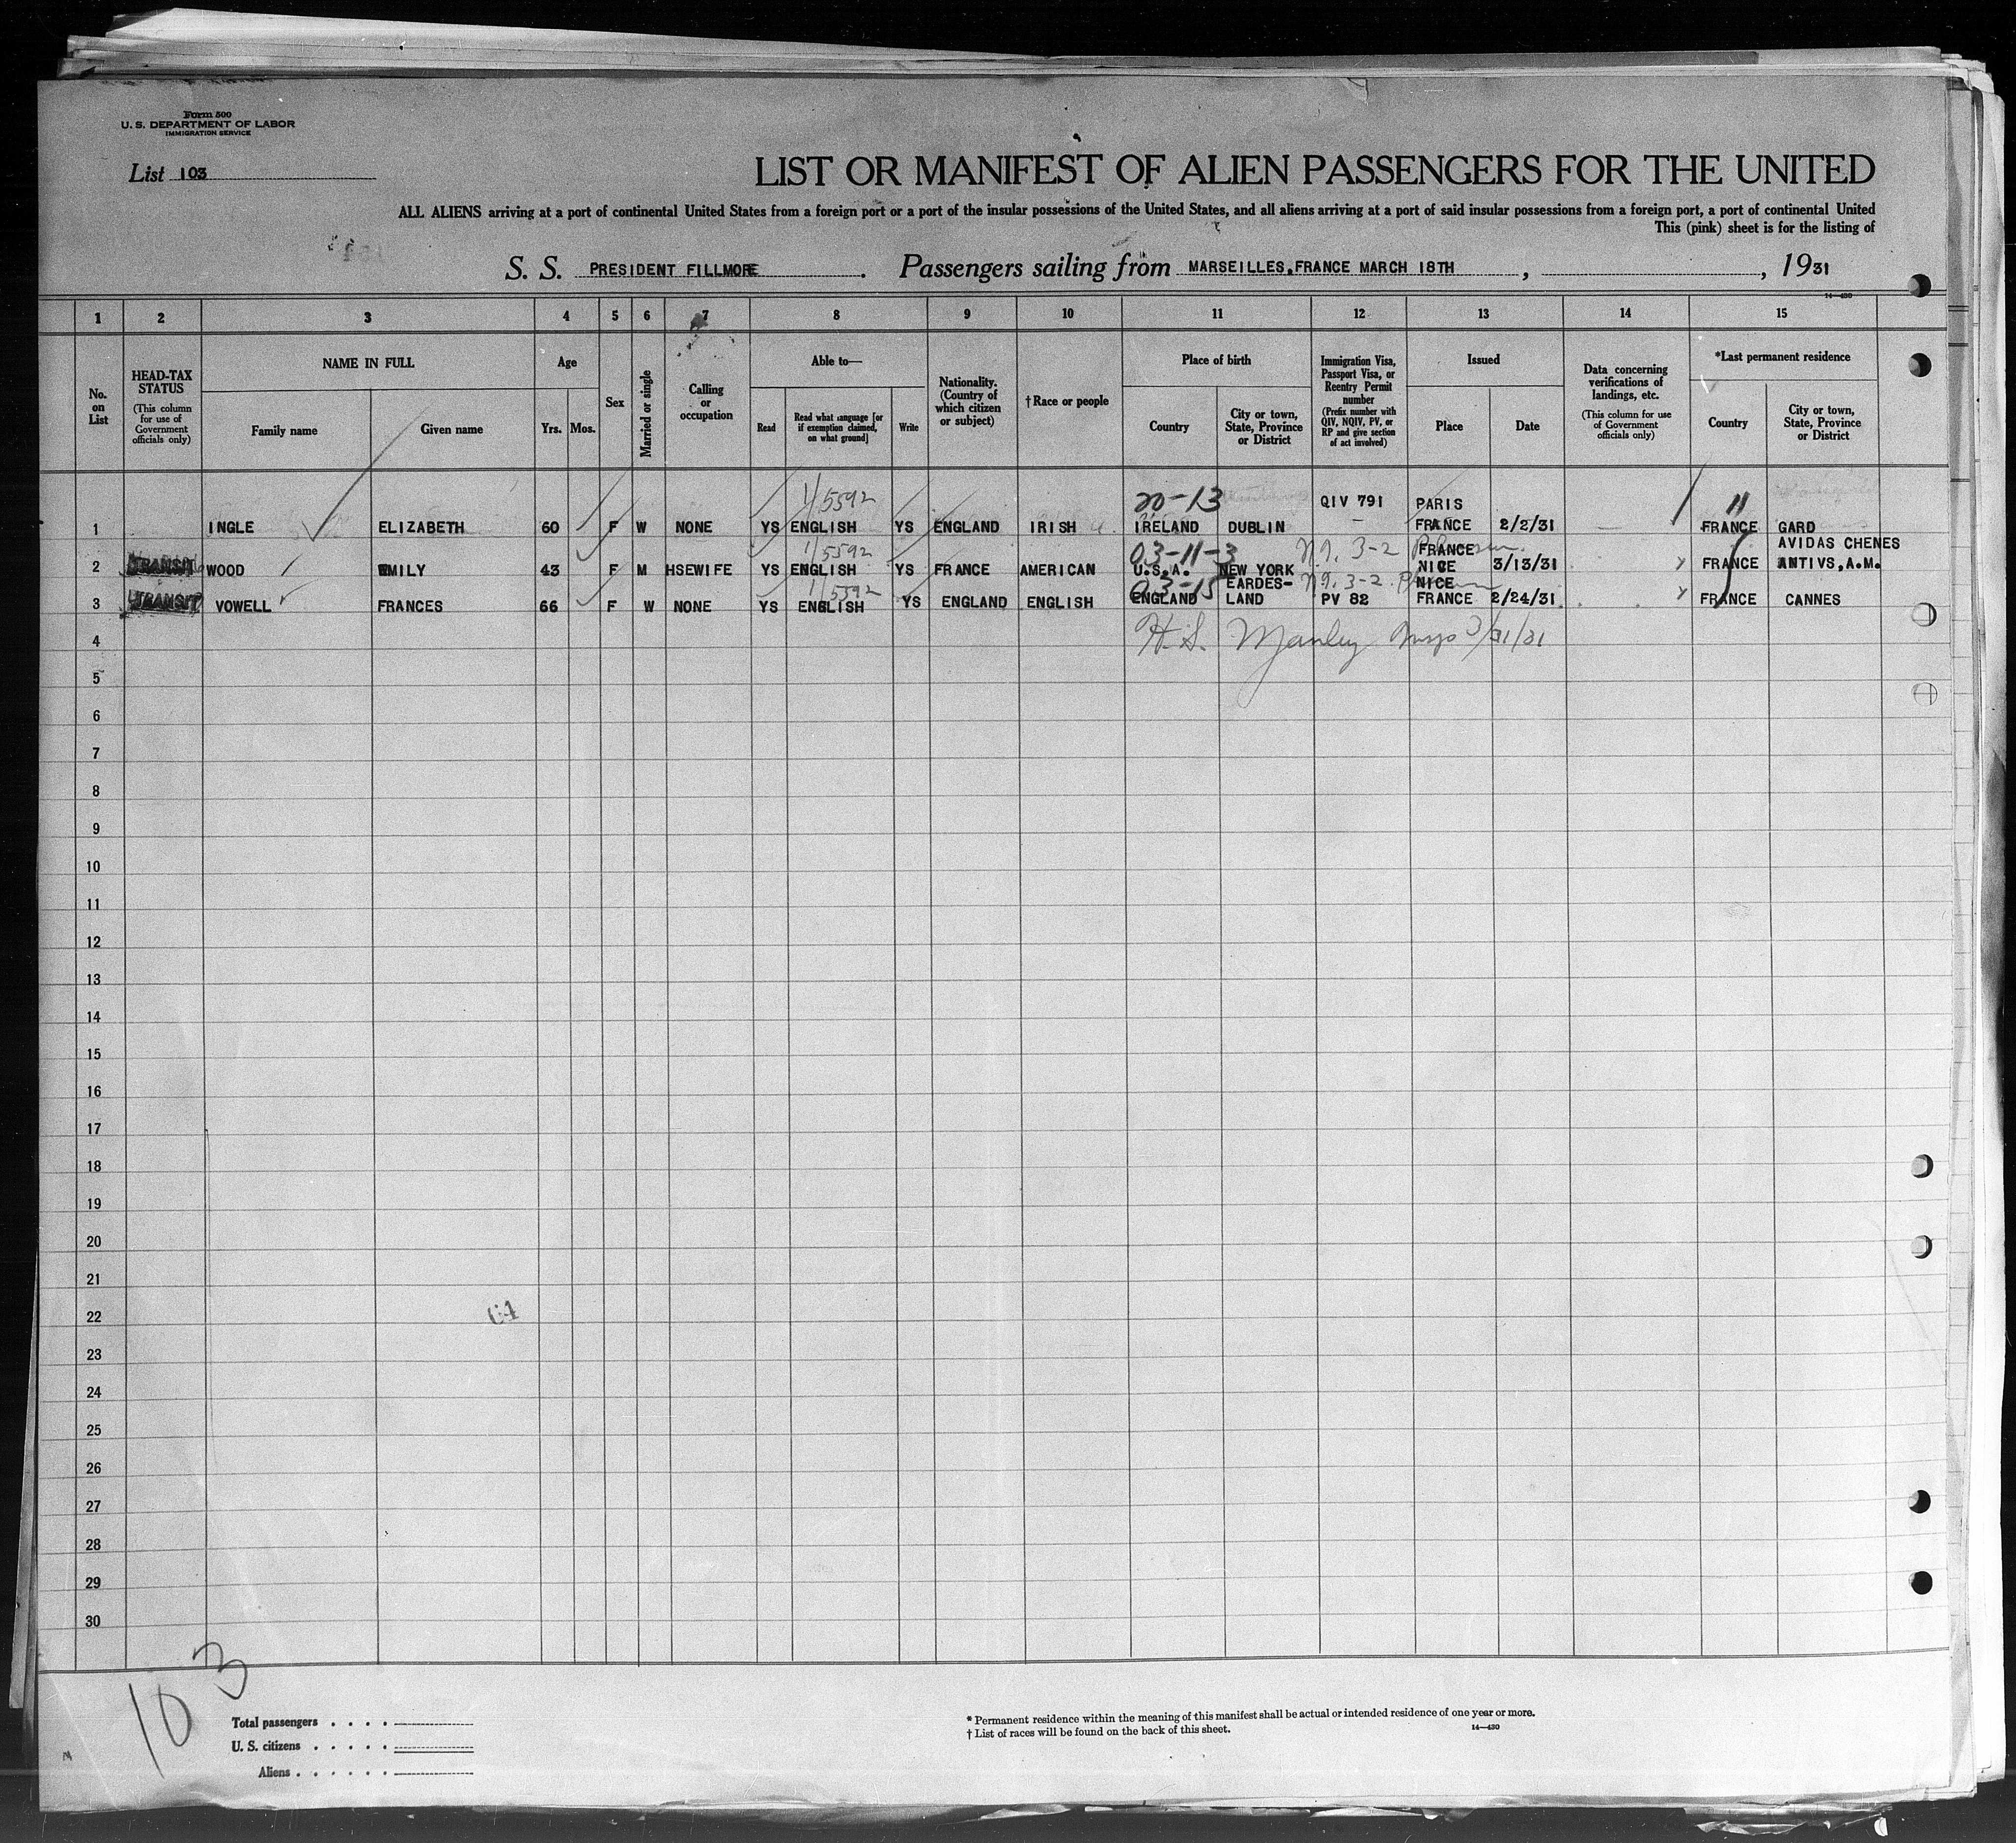 Form 500
U. S. DEPARTMENT OF LABOR
IMMIGRATION SERVICE
List 103
LIST OR MANIFEST OF ALIEN PASSENGERS FOR THE UNITED
ALL ALIENS arriving at a port of continental United States from a foreign port or a port of the insular possessions of the United States, and all aliens arriving at a port of said insular possessions from a foreign port, a port of continental United
This (pink) sheet is for the listing of
S. S. PRESIDENT FILLMORE . Passengers sailing from MARSEILLES,FRANCE MARCH 18TH , , 1931
14—430
1 2 3 4 5 6 7 8 9 10 11 12 13 14 15
No. on List
HEAD-TAX STATUS
(This column for use of Government officials only)
NAME IN FULL
Family name
Given name
Age
Yrs. Mos.
Sex
Married or single
Calling or occupation
Able to—
Read
Read what language [or if exemption claimed, on what ground]
Write
Nationality. (Country of which citizen or subject)
† Race or people
Place of birth
Country
City or town, State, Province or District
Immigration Visa, Passport Visa, or Reentry Permit number
(Prefix number with QIV, NQIV, PV, or RP and give section of act involved)
Issued
Place
Date
Data concerning verifications of landings, etc.
(This column for use of Government officials only)
*Last permanent residence
Country
City or town, State, Province or District
1/5592 20-13 QIV 791 PARIS 11
1 INGLE ELIZABETH 60 F W NONE YS ENGLISH YS ENGLAND IRISH IRELAND DUBLIN — FRANCE 2/2/31 FRANCE GARD
1/5592 03-11-3 3-2 FRANCE AVIDAS CHENES
2 TRANSIT WOOD EMILY 43 F M HSEWIFE YS ENGLISH YS FRANCE AMERICAN U.S.A. NEW YORK NICE 3/13/31 FRANCE ANTIVS,A.M.
1/5592 03-15 EARDES- 3-2 NICE
3 TRANSIT VOWELL FRANCES 66 F W NONE YS ENGLISH YS ENGLAND ENGLISH ENGLAND LAND PV 82 FRANCE 2/24/31 FRANCE CANNES
4 H.S. Manley Insp 3/31/31
5
6
7
8
9
10
11
12
13
14
15
16
17
18
19
20
21
22
23
24
25
26
27
28
29
30
103
Total passengers . . . .
U. S. citizens . . . . .
Aliens . . . . . .
* Permanent residence within the meaning of this manifest shall be actual or intended residence of one year or more.
† List of races will be found on the back of this sheet.
14—430